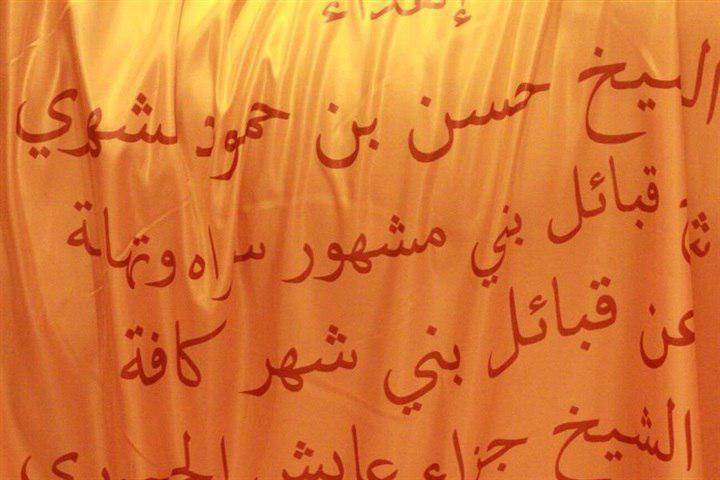 إهداء
الشيخ حسن بن حمود لشهري
قبائل بني مشهور سراه وتهامة
عن قبائل بني شهر كافة
الشيخ جزاء عايش